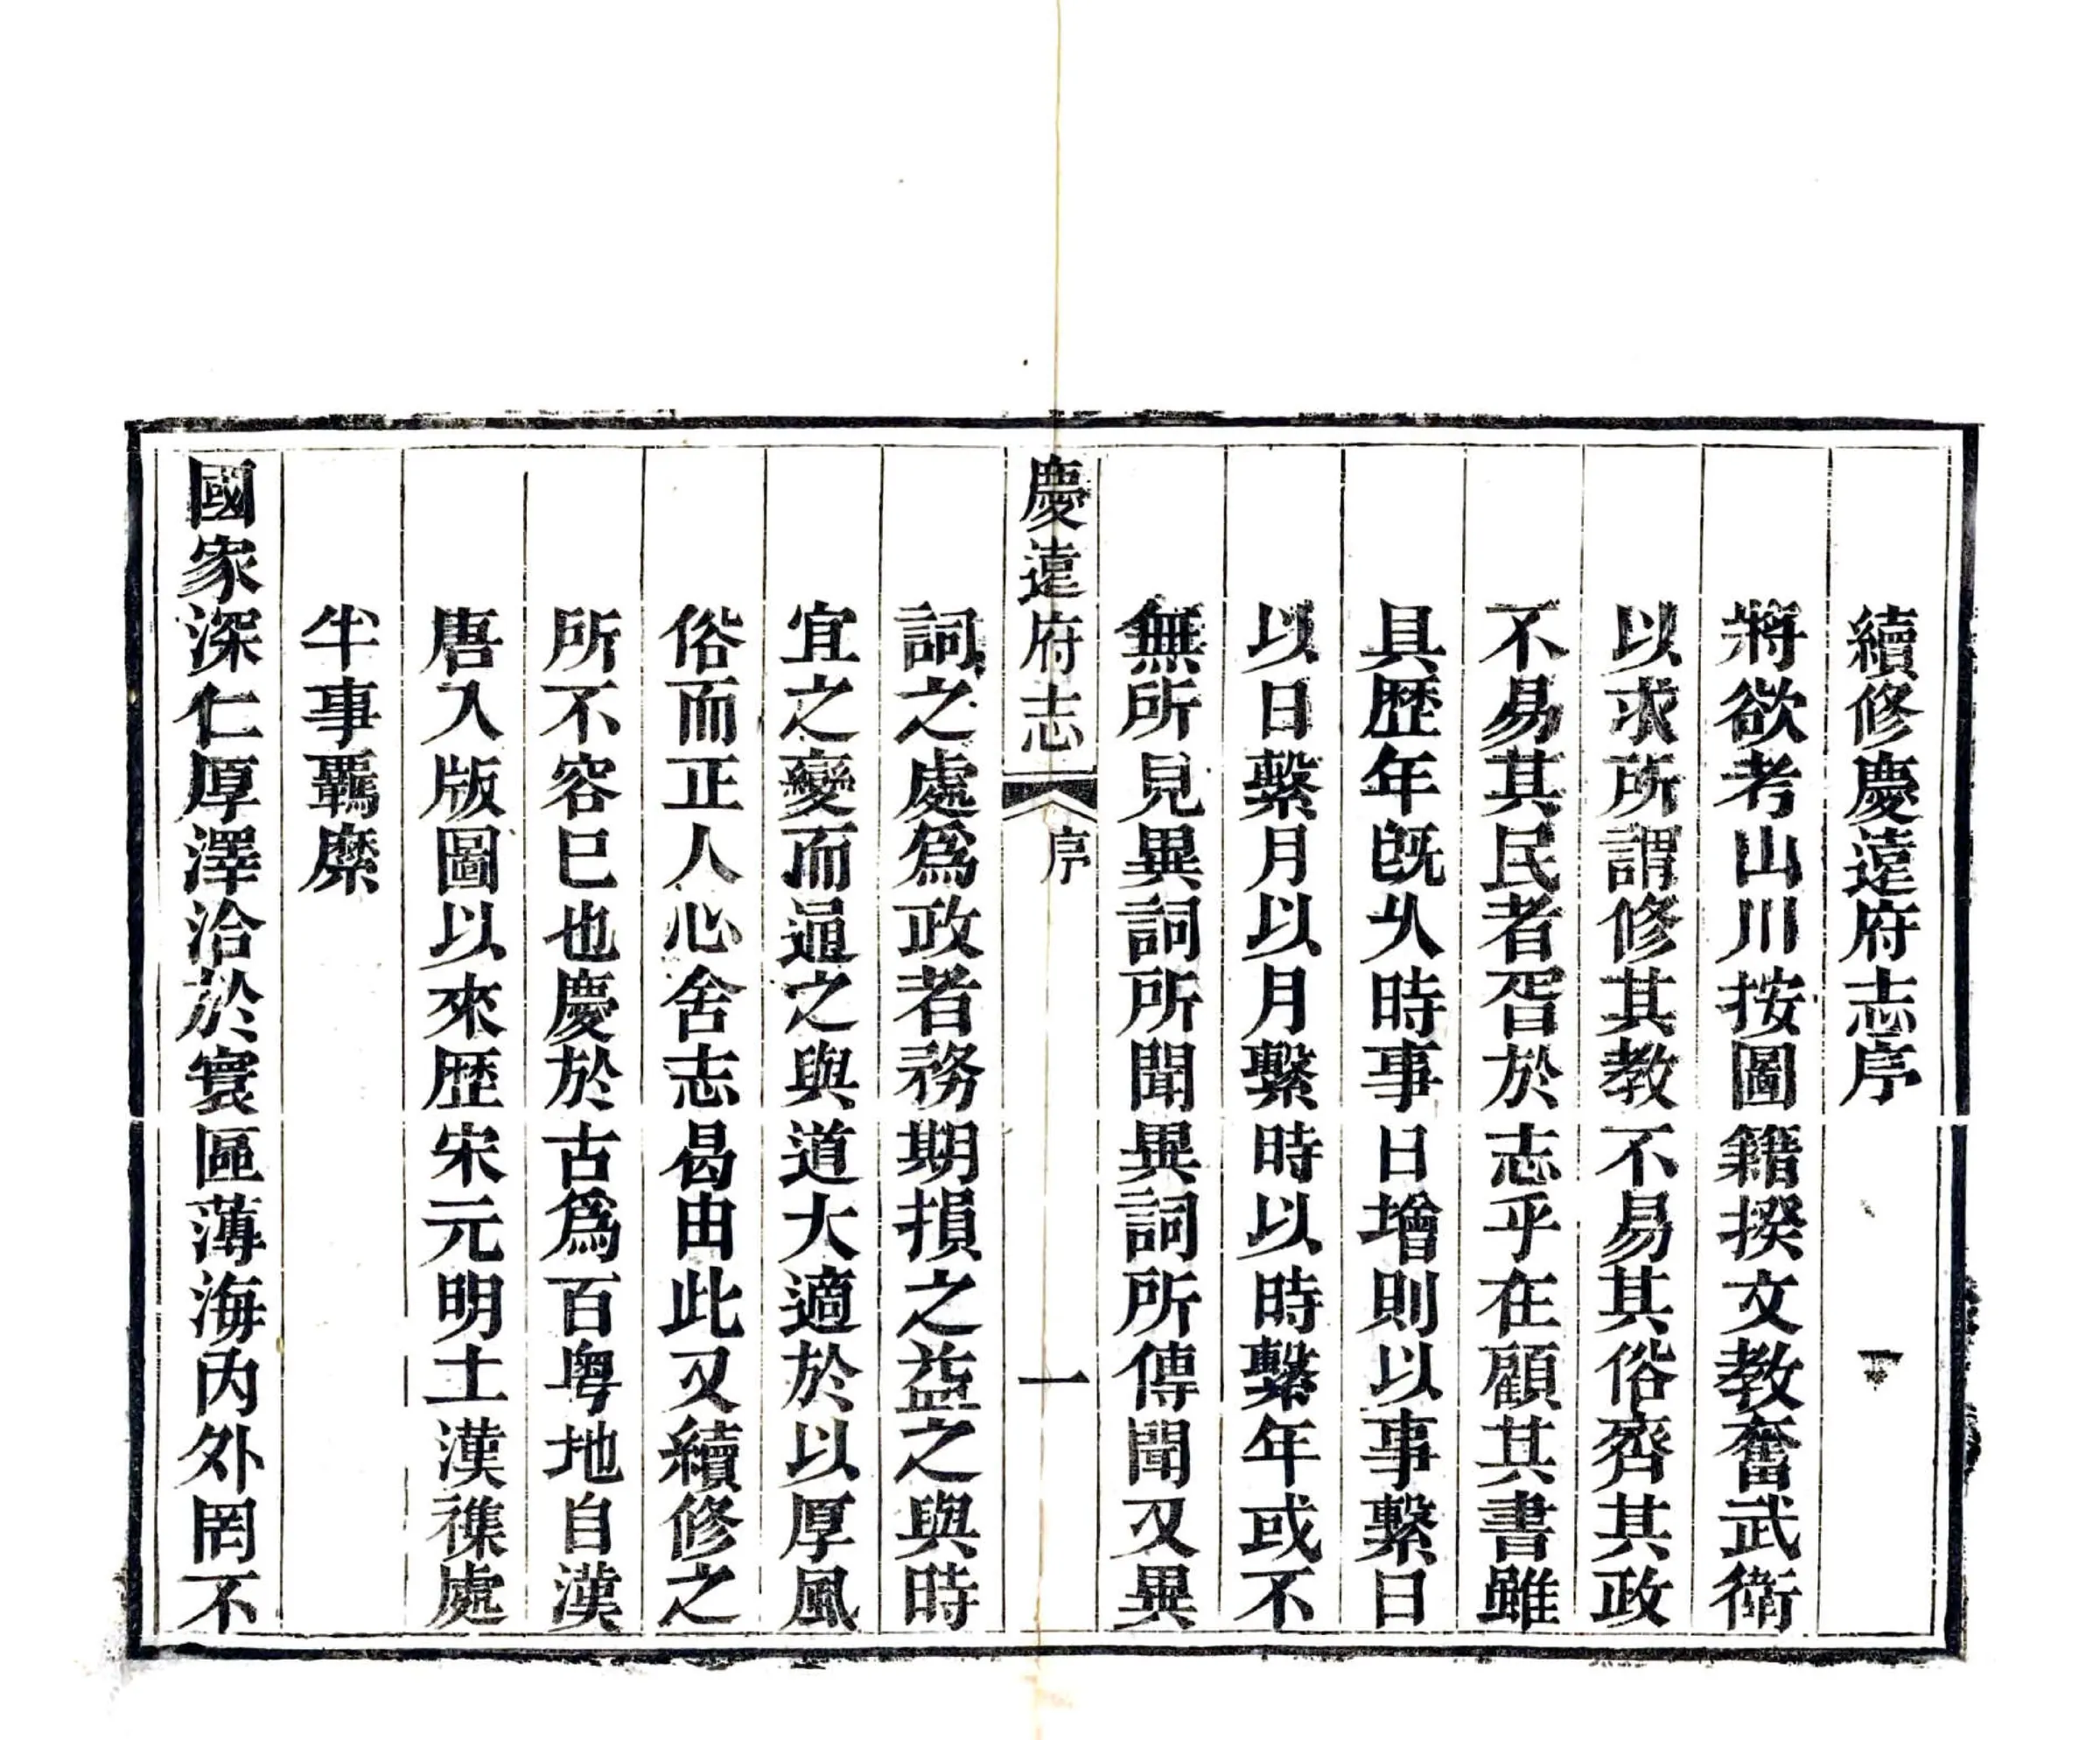 續修慶遠府志序
將欲考山川按圖籍揆文教奮武衛
以求所謂修其教不易其俗齊其政
不易其民者胥於志乎在顧其書雖
具歷年旣久時事日增則以事繫日
以日繫月以月繫時以時繫年或不
無所見異詞所聞異詞所傳聞又異
慶遠府志
序
一
詞之處為政者務期損之益之與時
宜之變而通之與道大適於以厚風
俗而正人心舍志曷由此又續修之
所不容已也慶於古為百粤地自漢
唐入版圖以來歷宋元明土漢襍處
半事羈縻
國家深仁厚澤洽於寰區薄海內外罔不